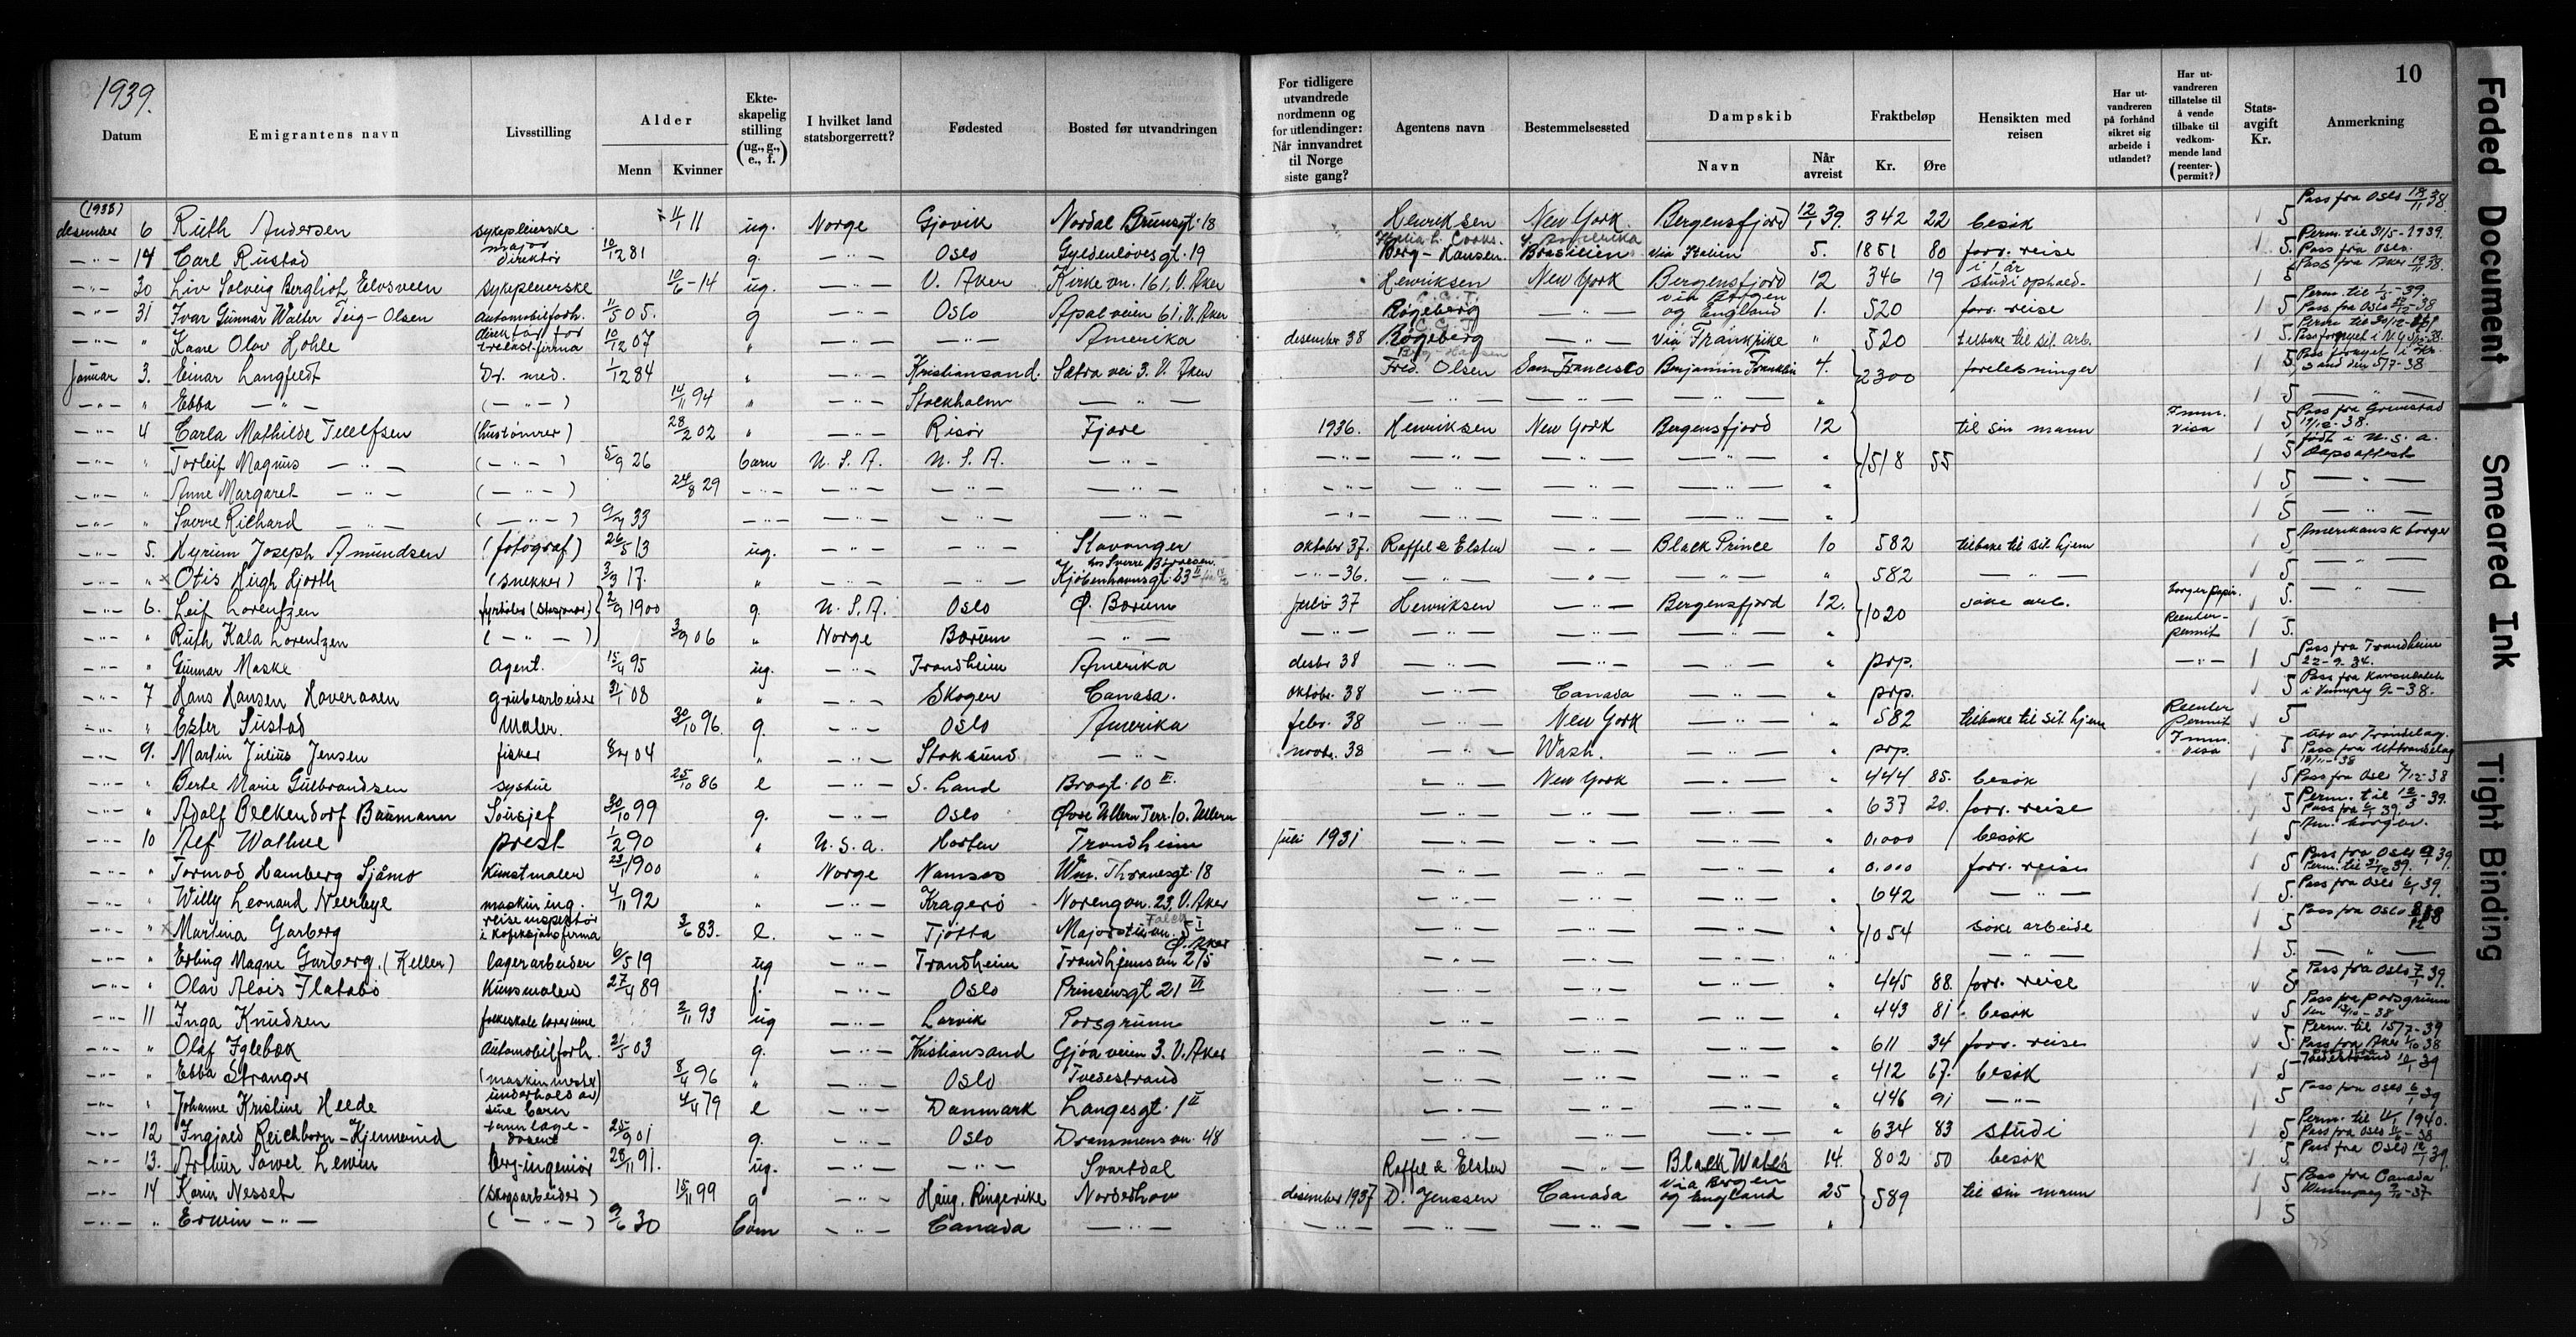 1939.
10
Datum | Emigrantens navn | Livsstilling | Alder Menn Kvinner | Ekteskapelig stilling (ug., g., e., f.) | I hvilket land statsborgerrett? | Fødested | Bosted før utvandringen | For tidligere utvandrede nordmenn og for utlendinger: Når innvandret til Norge siste gang? | Agentens navn | Bestemmelsessted | Dampskib Navn Når avreist | Fraktbeløp Kr. Øre | Hensikten med reisen | Har utvandreren på forhånd sikret sig arbeide i utlandet? | Har utvandreren tillatelse til å vende tilbake til vedkommende land (reenter-permit?) | Stats-avgift Kr. | Anmerkning
(1938) desember 6 Ruth Andersen sykepleierske 11/1 11 ug. Norge Gjøvik Nordal Brunsgt. 18 Henriksen New York Bergensfjord 12/1 39. 342 22 besøk 5 Pass fra Oslo 18/11 38.
—"— 14 Carl Rustad major direktør 10/12 81 g. —"— Oslo Gyldenløvesgt. 19 Berg-Hansen. Brasilien via Italien 5. 1851 80 forr. reise 5. Perm. til 31/5-1939. Pass fra Oslo.
—"— 30 Liv Solveig Bergliot Elvsveen sykepleierske 10/6-14 ug. —"— V. Aker Kirkevn. 161. V. Aker Henriksen New York Bergensfjord 12 346 19 i 1 år studiophold- 5
—"— 31 Ivar Gunnar Walter Teig-Olsen automobilforh. 11/5 05. g —"— Oslo Apalveien 61. V. Aker Røgeberg —"— via Bergen og England 1. 520 forr. reise 5
—"— " Kaare Olav Hohle direktør for trelastfirma 10/12 07 " —"— —"— Amerika desember 38 Røgeberg —"— via Frankrike " 520 tilbake til sit arb. 5.
Januar 3. Einar Langfeldt Dr. med. 1/12 84 " —"— Kristiansand. Sætravei 3. V. Aker Fred. Olsen San Francisco Benjamin Franklin 4. 2300 forelesninger 5
—"— " Ebba —"— (—"—) 14/11 94 " —"— Stockholm —"— —"— —"— —"— " 5 —"—
—"— 4 Carla Mathilde Tellefsen (hustømrer) 28/2 02 " —"— Risør Fjære 1936. Henriksen New York Bergensfjord 12 til sin mann Imm. visa 5 Pass fra Grimstad
—"— " Torleif Magnus —"— (—"—) 5/9 26 barn U. S. A. U. S. A. —"— —"— —"— —"— —"— " 1518 55 5 født i U. S. A. Dåpsattest
—"— " Anne Margaret —"— (—"—) 24/8 29 —"— —"— —"— —"— —"— —"— —"— —"— " 5 —"—
—"— " Sverre Richard —"— (—"—) 9/7 33 —"— —"— —"— —"— —"— —"— —"— —"— " 5 —"—
—"— 5. Hyrum Joseph Amundsen (fotograf) 26/5 13 ug. —"— —"— Stavanger oktober 37. Raffel & Elster —"— Black Prince 10 582 tilbake til sit hjem 5 Amerikansk borger
—"— " Otis Hugh Hjorth (snekker) 3/3 17. " —"— —"— Kjøbenhavnsgt. 23 II —"— 36. —"— —"— —"— " 582 —"— 5 —"—
—"— 6. Leif Lorentzen 2/9 1900 g. U. S. A. Oslo Ø. Bærum juli 37 Henriksen —"— Bergensfjord 12. 1020 søke arb. borgerpapir. 5. —"—
—"— " Ruth Kala Lorentzen (—"—) 3/9 06 " Norge Bærum —"— —"— —"— —"— —"— " Reenter-permit 5.
—"— " Gunnar Maske Agent. 15/4 95 ug. —"— Trondheim Amerika desbr 38 —"— —"— —"— " prp. —"— 5 Pass fra Trondheim 22-9. 34.
—"— 7 Hans Hansen Haveraaen grubearbeider 31/1 08 " —"— Skoger Canada. oktobr. 38 —"— Canada —"— " prp. 5 Pass fra Konsulatet i Winnipeg 9-38.
—"— " Ester Sustad Maler. 30/10 96. g. —"— Oslo Amerika febr. 38 —"— New York —"— " 582 tilbake til sit hjem Reenter Permit 5
—"— 9. Martin Julius Jensen fisker 8/7 04 " —"— Stoksund —"— novbr. 38 —"— Wash. —"— " prp. Imm. visa 5
—"— " Berte Marie Gulbrandsen systue 25/10 86 e —"— S. Land Brogt. 10 II. —"— New York —"— " 444 85. besøk 5 Pass fra Oslo
—"— " Adolf Beckendorf Baumann Sousjef 30/10 99 g. —"— Oslo Øvre Ullern Terr. 10. Ullern —"— —"— —"— " 637 20. forr. reise 5 Perm. til 12/3-39.
—"— 10 Alf Wathne prest 1/2 90 " U. S. a. Horten Trondheim juli 1931 —"— —"— —"— " 0,000 besøk 5 Am. borger.
—"— " Tormod Hamberg Sjåmo Kunstmaler 23/1 1900 " Norge Namsos Wm. Thranesgt. 18 —"— —"— —"— " 0.000 forr. reise 5
—"— " Willy Leonard Neerbye maskining. 4/11 92 " —"— Kragerø Norengvn. 23. V. Aker —"— —"— —"— " 642 —"— 5. Pass fra Oslo 6/1 39.
—"— " Martina Garberg reiseinspektør 3/6 83. e. —"— Tjøtta Majorstuvn. 5 I —"— —"— —"— " 1054 søke arbeide 5 Pass fra Oslo
—"— " Erling Magne Garberg. (Keller) lagerarbeider 6/5 19 ug —"— Trondheim Trondhjemsvn 215 Ø. Aker —"— —"— —"— " —"— 5. —"—
—"— " Olav Alois Flatabø Kunsmaler 27/4 89 f. —"— Oslo Prinsensgt 21 VI —"— —"— —"— " 445 88. forr. reise 5 Pass fra Oslo 7/1 39.
—"— 11 Inga Knudsen folkeskolelærerinne 2/11 93 ug —"— Larvik Porsgrunn —"— —"— —"— " 443 81 besøk 5 Pass fra Porsgrunn
—"— " Olaf Iglebæk Automobilforh. 21/5 03 g. —"— Kristiansand Gjøaveien 3. V. Aker —"— —"— —"— " 611 34 forr. reise 5. Perm. til 15/7-39
—"— " Ebba Stranger (maskinmester) 8/4 96 " —"— Oslo Tvedestrand —"— —"— —"— " 412 67. besøk 5
—"— " Johanne Kristine Heede underhold av sine barn 4/4 79 e —"— Danmark Langesgt. 1 II —"— —"— —"— " 446 91 —"— 5 Pass fra Oslo 6/1 39
—"— 12 Ingjald Reichborn-Kjennerud 25/9 01 g. —"— Oslo Drammensvn. 48 —"— —"— —"— " 634 83 studi 5
—"— 13. Arthur Sowel Lewin berg-ingeniør 28/11 91. ug. —"— —"— Svartdal Raffel & Elster —"— Black Watch 14. 802 50 besøk 5. Pass fra Oslo 12/1 39.
—"— 14 Karin Nesset (skogsarbeider) 15/11 99 g —"— Haug. Ringerike Norderhov desember 1937 D. Jenssen Canada via Bergen og England 25 589 til sin mann 5 Pass fra Canada
—"— " Erwin —"— (—"—) 9/6 30 barn —"— Canada —"— —"— —"— —"— —"— " 5
Faded Document
Smeared Ink
Tight Binding